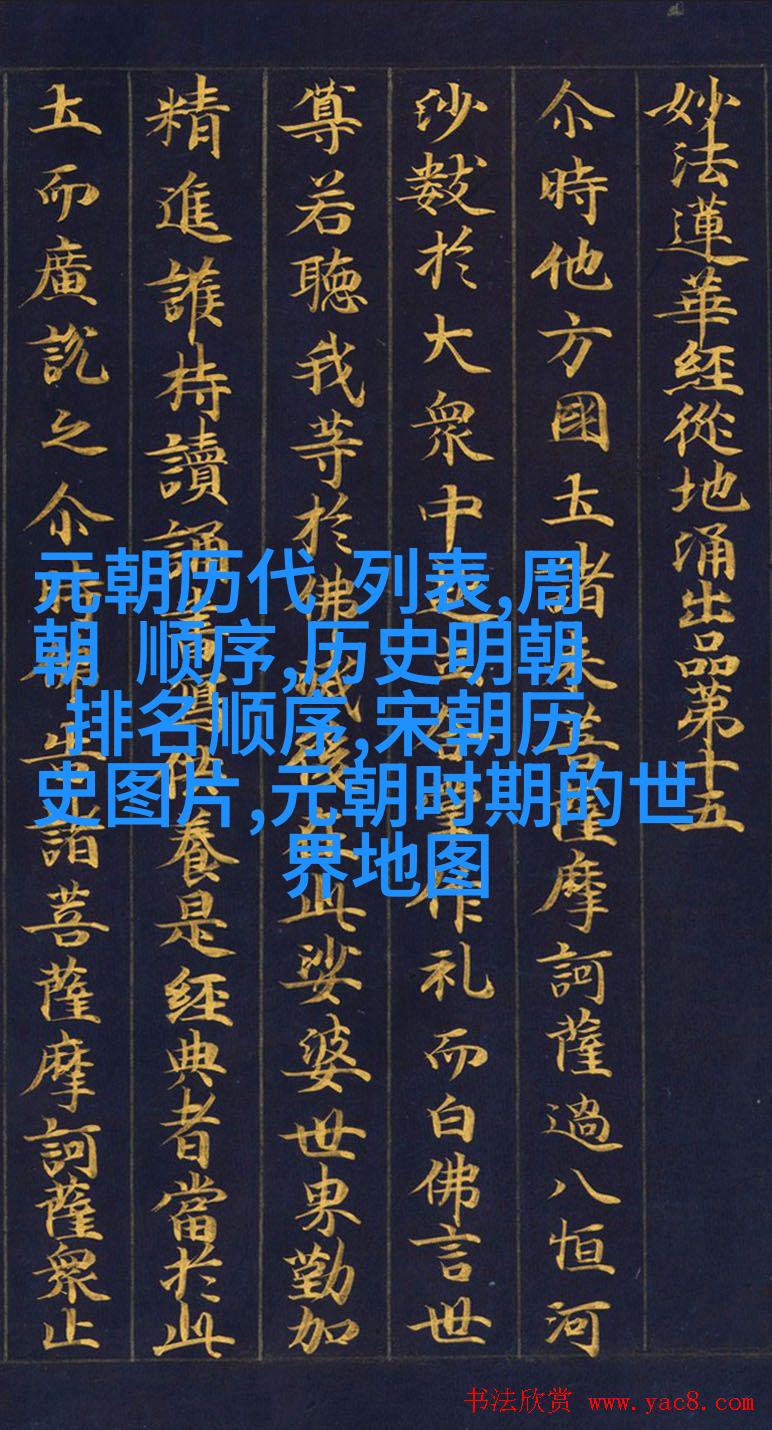 妙法蓮華經從地涌出品第十五
尒時他方國土諸来菩薩摩訶薩過八恒河
沙數於大衆中起立合掌作礼而白佛言世
尊若聽我等於佛滅後在此娑婆世界勤加
精進護持讀誦書寫供養是經典者當於此
土而廣說之尒時佛告諸菩薩摩訶薩衆止
元朝历代 列表,周
朝 顺序,历史明朝
排名顺序,宋朝历
史图片,元朝时期的世
界地图
书法欣赏 www.yac8.com